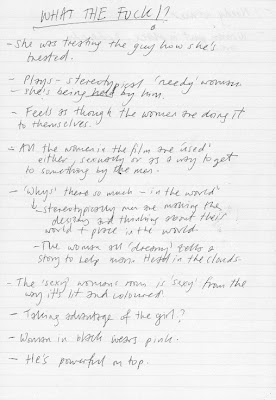 WHAT THE FUCK!?
- She was treating the guy how she's
treated.
- Plays - stereotypical 'needy' woman.
- she's being held by him.
- Feels as though the women are doing it
to themselves.
- All the women in the film are 'used'
either sexually or as a way to get
to something by the men.
- 'Whys' there so much - in the world'
stereotypically men are making the
designs and thinking about their
world + place in the world.
- The woman all 'dreamy' tells a
story to help man. Head in the clouds.
- The 'sexy' womans room is 'sexy' from the
way it's lit and coloured.
- Taking advantage of the girl?
- Woman in black wears pink.
- He's powerful on top.